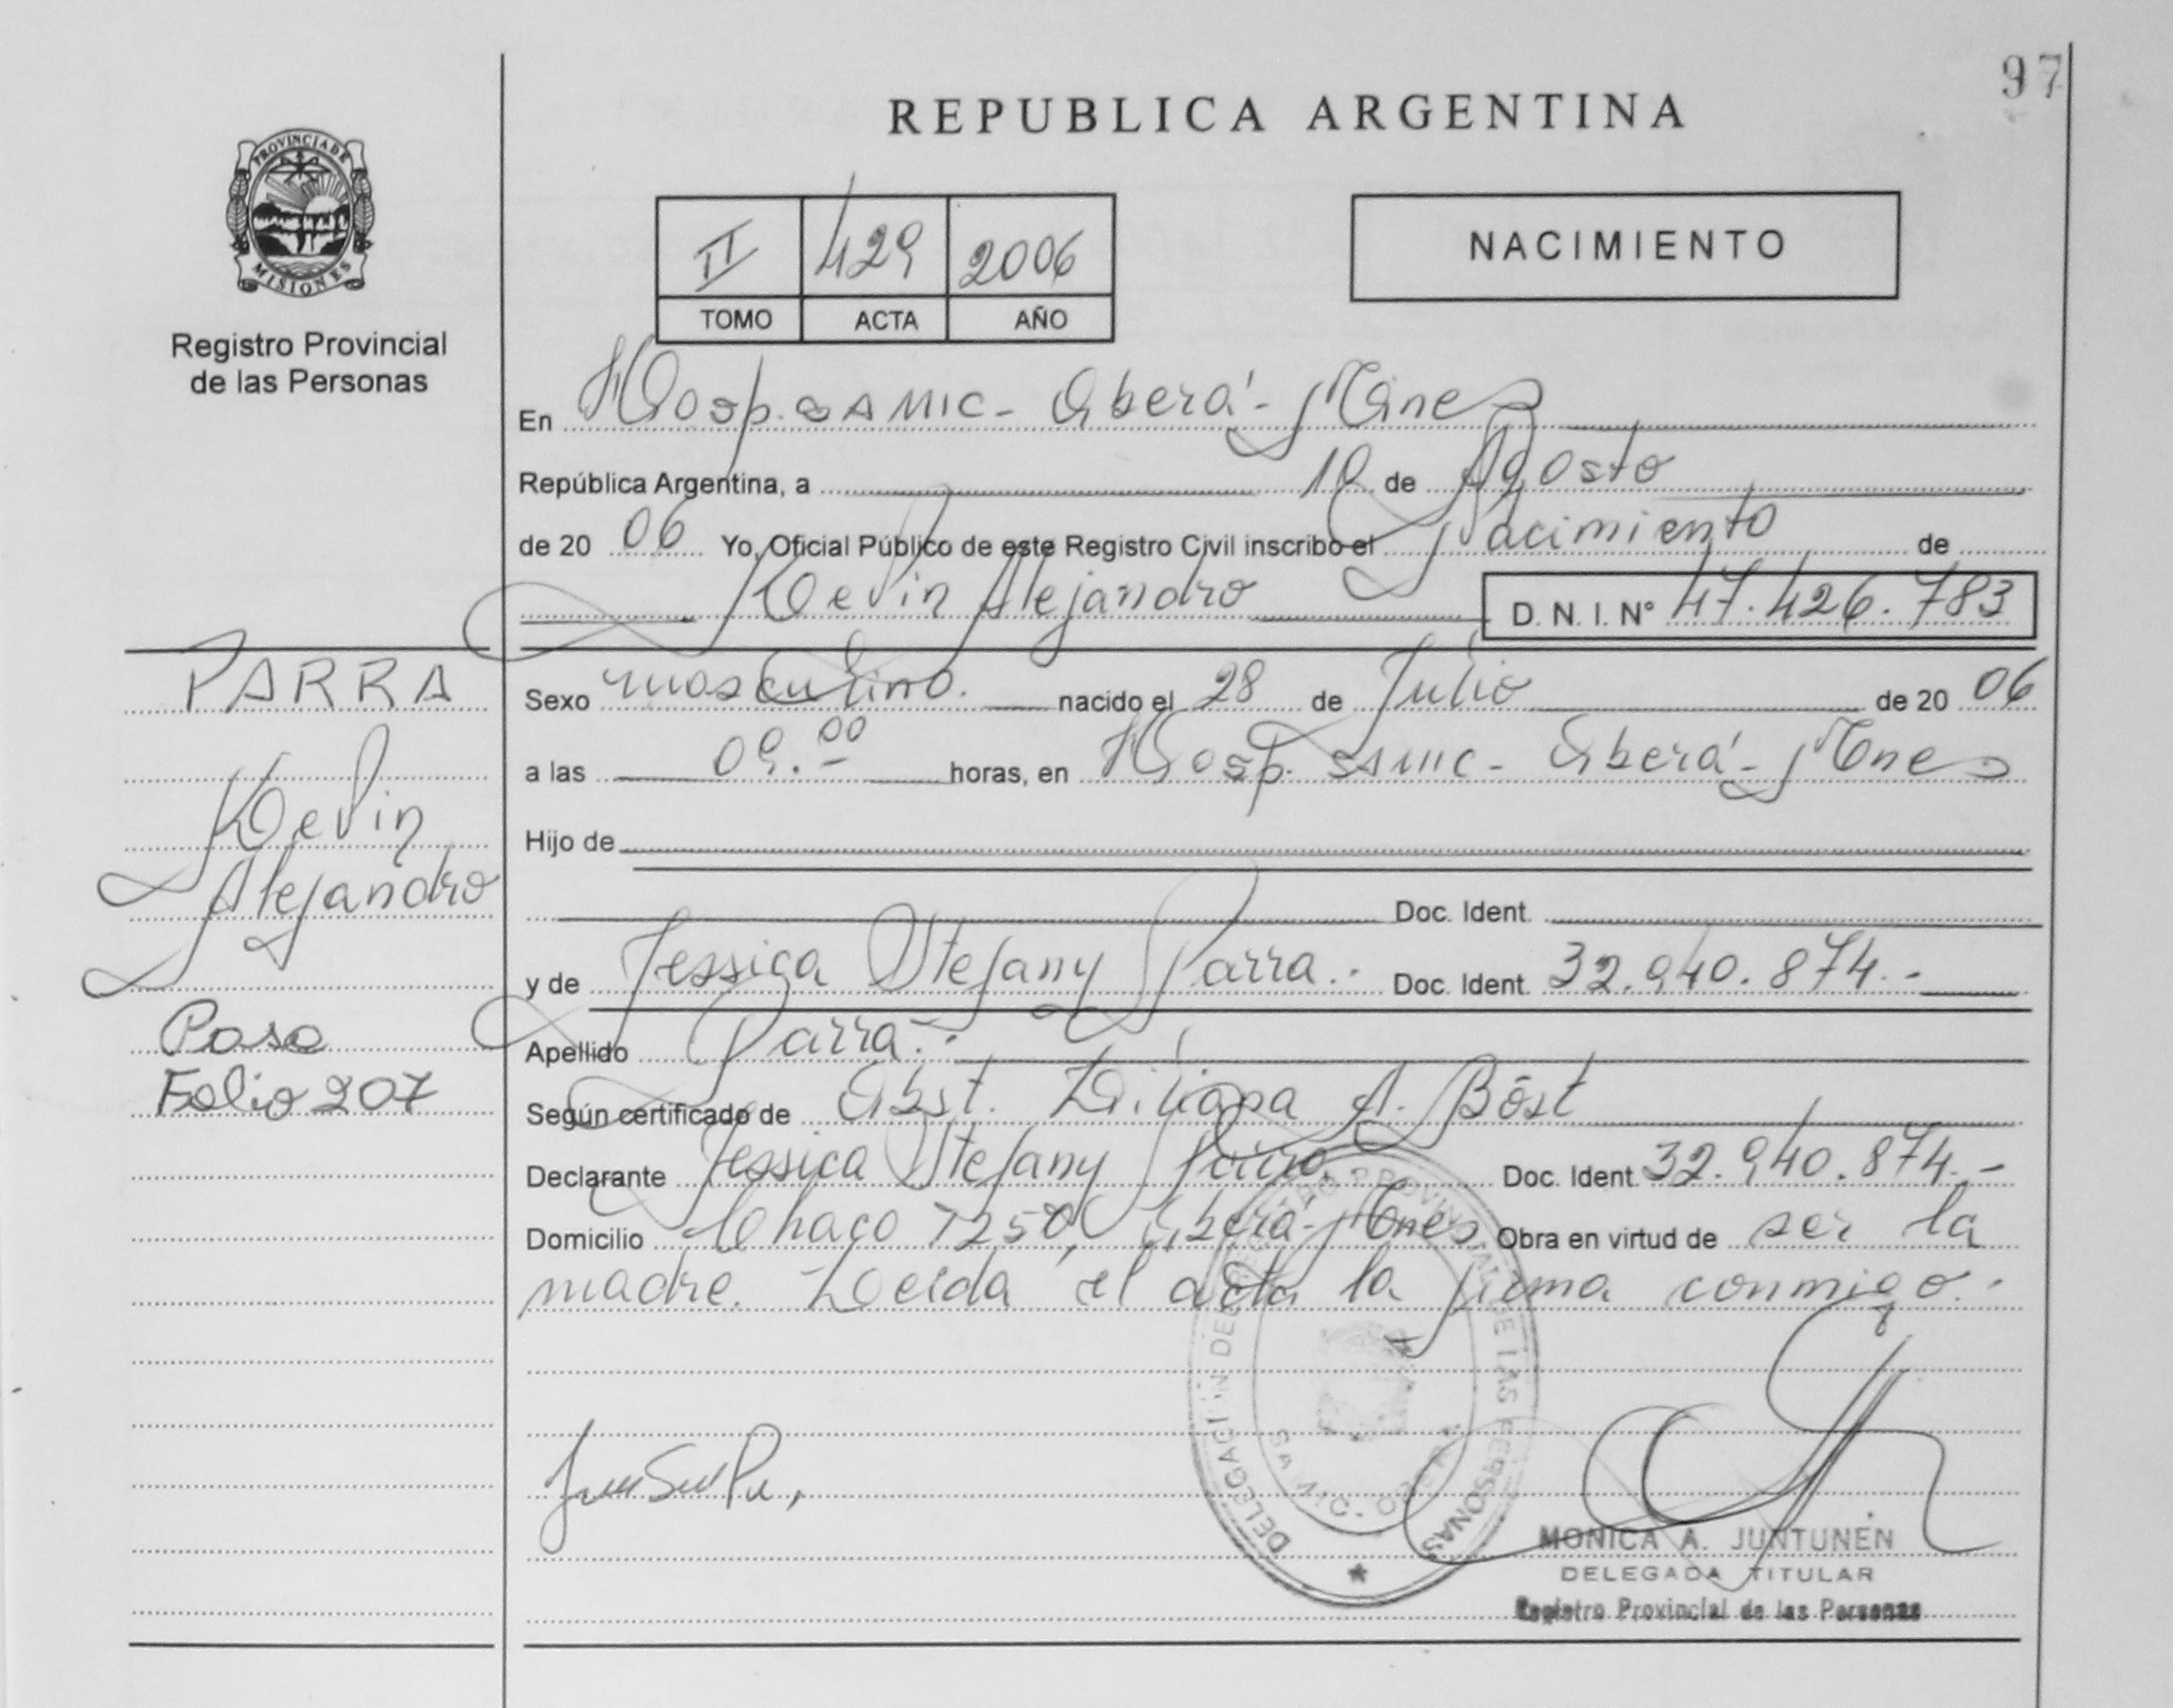 97
REPUBLICA ARGENTINA
PROVINCIA DE MISIONES
Registro Provincial
de las Personas
II 429 2006
TOMO ACTA AÑO
NACIMIENTO
En Hosp. SAMIC - Oberá - Mnes
República Argentina, a 10 de Agosto
de 20 06 Yo, Oficial Público de este Registro Civil inscribo el Nacimiento de
Kevin Alejandro D. N. I. N° 47.426.783
PARRA
Kevin
Alejandro
Pasa
Folio 207
Sexo masculino. nacido el 28 de Julio de 20 06
a las 09.00 horas, en Hosp. SAMIC - Oberá - Mnes
Hijo de
Doc. Ident.
y de Jessica Stefany Parra.- Doc. Ident. 32.940.874.-
Apellido Parra.-
Según certificado de Obst. Liliana A. Böst
Declarante Jessica Stefany Parra Doc. Ident 32.940.874.-
Domicilio Chaco 1250, Oberá - Mnes Obra en virtud de ser la
madre. Leída el acta la firma conmigo.-
DELEGACIÓN DEL REGISTRO PROVINCIAL DE LAS PERSONAS
MONICA A. JUNTUNEN
DELEGADA TITULAR
Registro Provincial de las Personas